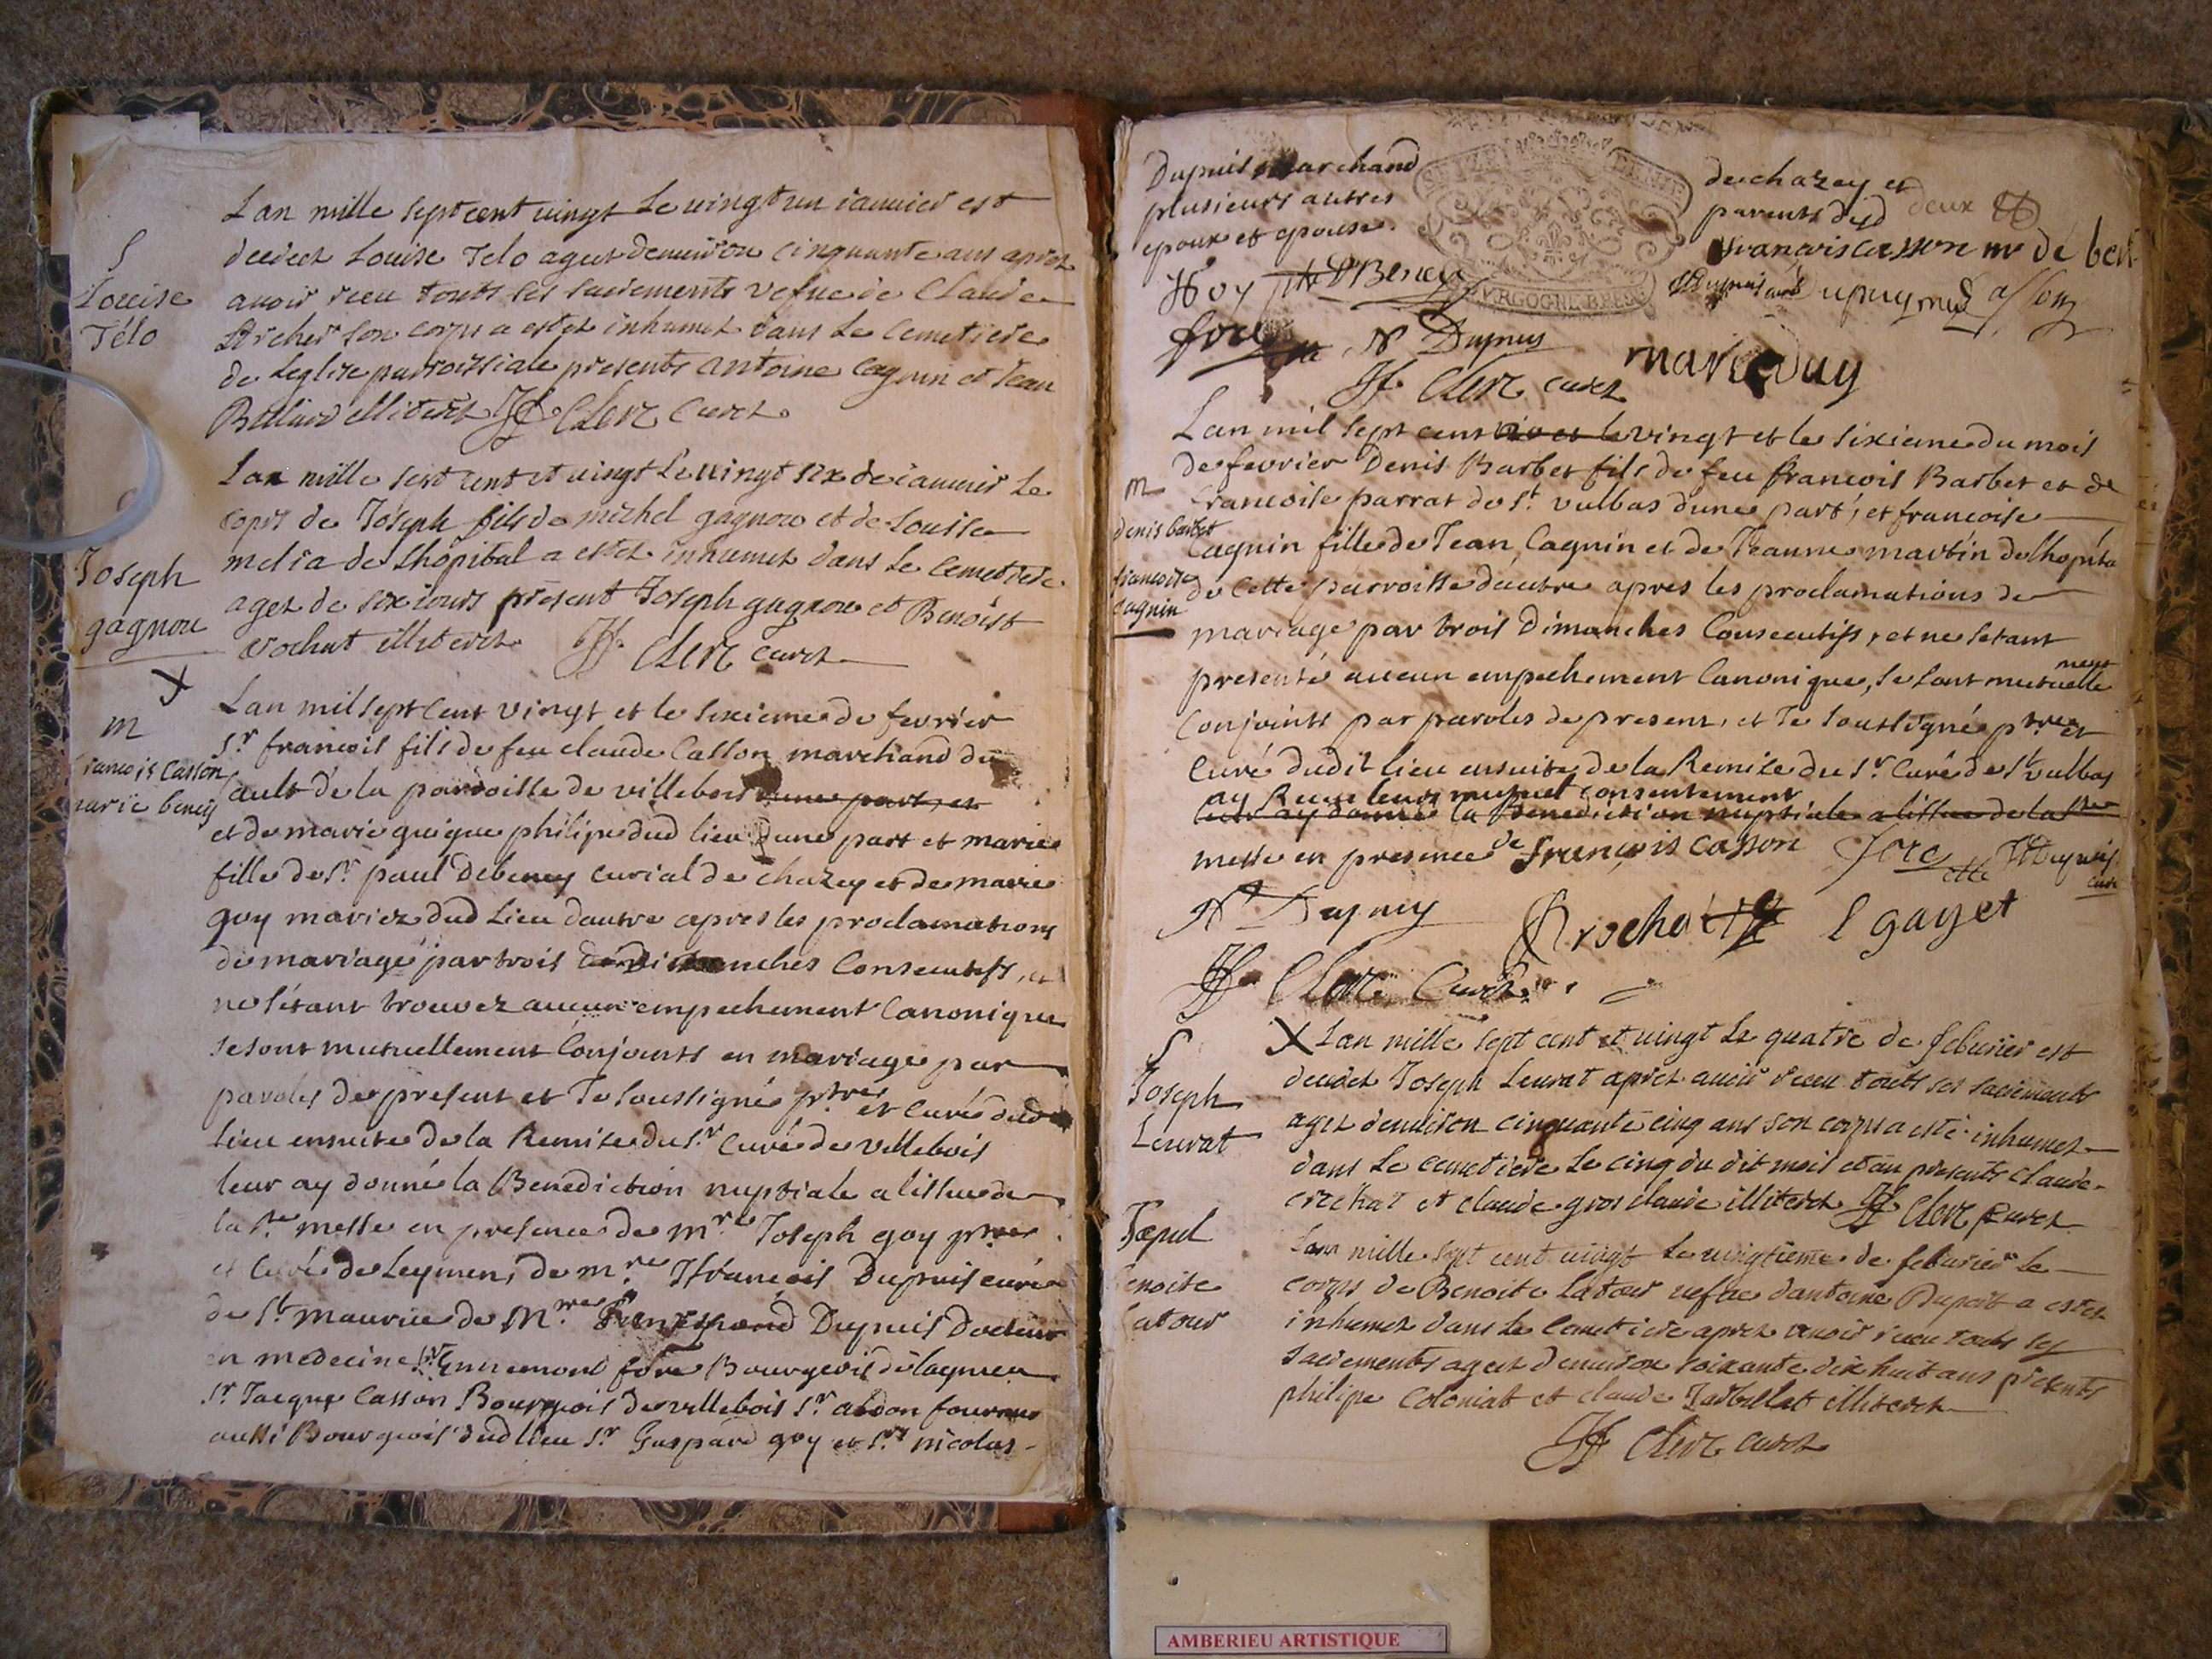 Lan mille sept cent uingt Le uingt un ianuier est
S
Louise
Télo
decedez Louise Telo agez denuiron cinquante ans aprez
auoir receu touts ses sacrements vefue de Claude
Archer son corps a estez inhumez dans Le Cemetiere
de Leglise parroissiale presents antoine Cagnin et Jean
Billard illiterez Clerc Curez
Lan mille sept cent et uingt Le uingt six de ianuier Le
corps de Joseph fils de michel gagnou et de Louise
Joseph
gagnou
melia de Lhôpital a estez inhumez dans Le Cemetiere
agez de six iours présent Joseph gagnou et Benoist
Vochat illiterez Clerc curez
X
m
francois Casson
marie beney
Lan mil sept Cent vingt et le sixieme de fevrier
Sr francois fils de feu claude Casson marchand du
Sault de la parroisse de villebois dune part, et
et de marie guigue philipe dud lieu dune part et marie
fille de Sr paul Debeney curial de chazey et de marie
goy mariez dud Lieu dautre apres les proclamations
de mariage par trois dimanches Consecutifs, et
ne sétant trouvez aucun empechement Canonique
se sont mutuellement Conjoints en mariage par
paroles de present et Je soussigné ptre et Curé dud
Lieu ensuite de la Remise du Sr Curé de villebois
leur ay donné la Benediction nuptiale a lissue de
la Ste messe en presence de mre Joseph goy ptre
et Curé de Leymen, de mre francois Dupuis curé
de St maurice de Mre Dupuis Docteur
en medecine Sr Ennemond fore Bourgeois de lagnieu
Sr Jacque Casson Bourgeois de villebois Sr abdon
aussi Bourgeois dud lieu Sr Gaspard goy et Srs nicolas
Dupuis marchand de chazey et
plusieurs autres parents desd deux
epoux et epouse.
francois casson
goy DBeney Dupuy
fore N Dupuy
Clerc curez
marie Duy
Lan mil sept cent vingt et le sixieme du mois
de fevrier Denis Barbet fils de feu francois Barbet et de
m
denis barbet
francoise
Cagnin
francoise parrat de St vulbas dune part, et francoise
Cagnin fille de Jean Cagnin et de Jeanne martin de lhopita
de Cette parroisse dautre apres les proclamations de
mariage par trois Dimanches Consecutifs, et ne setant
presenté aucun empechement Canonique, se sont mutuelle
ment
Conjoints par paroles de present, et Je soussigné ptre et
Curé dudit lieu ensuite de la Remise du Sr Curé de St vulbas
ay Receu leur mutuel consentement
leur ay donné la Benediction nuptiale a lissue de la Ste
messe en presence de françois casson fore Dupuis
curé
N Dupuy Brochot L gayet
Clerc Curez
S
Joseph
Leurat
X Lan mille sept cent et uingt Le quatre de feburier est
decedez Joseph Leurat aprez auoir receu touts ses sacrements
agez denuiron cinquante cinq ans son corps a esté inhumez
dans Le cemetiere Le cinq du dit mois et an presents claude
crechat et claude gros claude illiterez Clerc Curez
Sepul
benoite
latour
Lan mille sept cent uingt Le uingtieme de feburier Le
corps de Benoite Latour uefue dantoine Duport a estez
inhumez dans Le Cemetiere aprez auoir receu touts ses
sacrements agez denuiron soixante dix huit ans presents
philipe Coloniat et claude Tarbillat illiterez
Clerc curez
AMBERIEU ARTISTIQUE